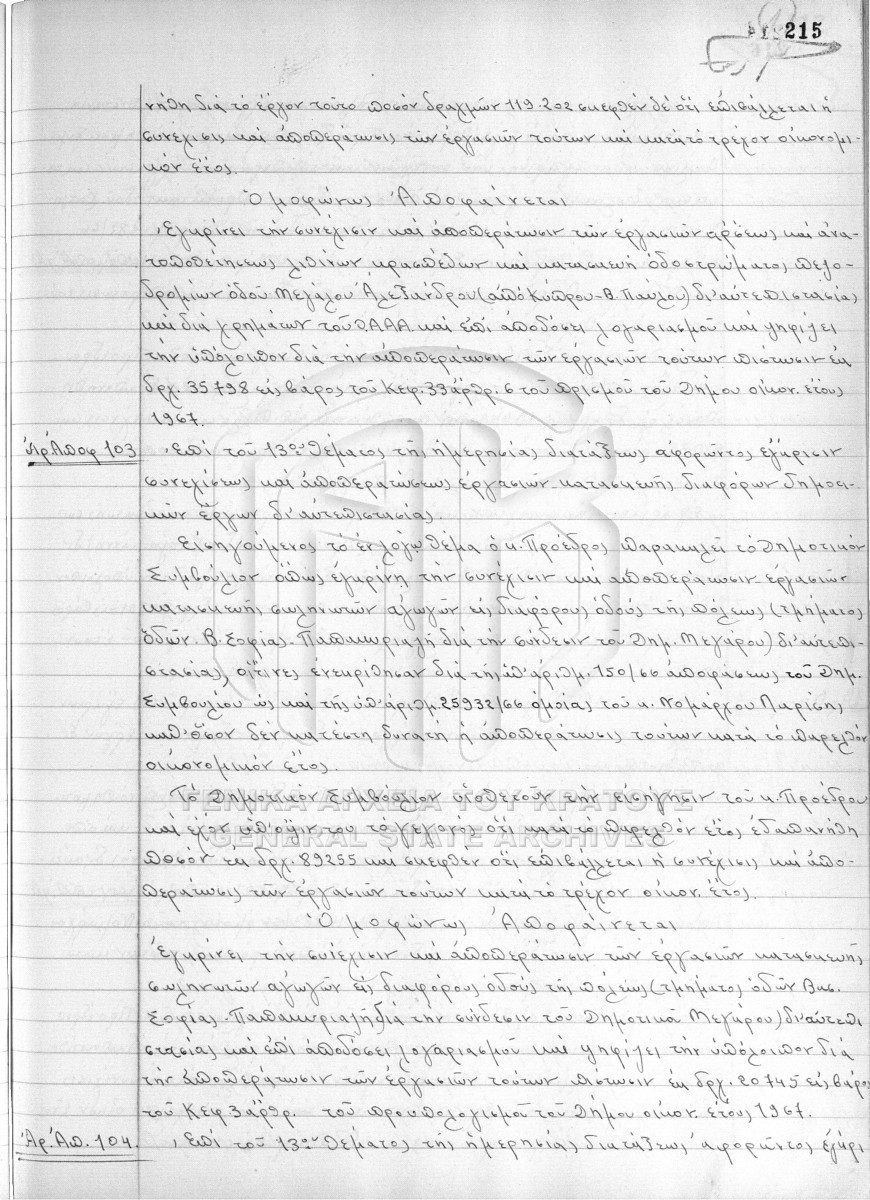 215
νήθη διά τό ἔργον τοῦτο ποσόν δραχμῶν 119.202 σκεφθέν δέ ὅτι ἐπιβάλλεται ἡ
συνέχισις καί ἀποπεράτωσις τῶν ἐργασιῶν τούτων καί κατά τό τρέχον οἰκονομι-
κόν ἔτος.
Ὁμοφώνως Ἀποφαίνεται
Ἐγκρίνει τήν συνέχισιν καί ἀποπεράτωσιν τῶν ἐργασιῶν ἄρσεως καί ἀνα-
τοποθετήσεως λιθίνων κρασπέδων καί κατασκευή ὁδοστρώματος πεζο-
δρομίων ὁδοῦ Μεγάλου Ἀλεξάνδρου (ἀπό Κύπρου - Β. Παύλου) δι' αὐτεπιστασίας
καί διά χρημάτων τοῦ Ο.Α.Α.Α. καί ἐπί ἀποδόσει λογαριασμοῦ καί ψηφίζει
τήν ὑπόλοιπον διά τήν ἀποπεράτωσιν τῶν ἐργασιῶν τούτων πίστωσιν ἐκ
δρχ. 35798 εἰς βάρος τοῦ Κεφ. 33 ἄρθρ. 6 τοῦ π)ρισμοῦ τοῦ Δήμου οἰκον. ἔτους
1967.
Ἀρ. Ἀποφ 103 Ἐπί τοῦ 13ου θέματος τῆς ἡμερησίας διατάξεως ἀφορῶντος ἔγκρισιν
συνεχίσεως καί ἀποπερατώσεως ἐργασιῶν κατασκευῆς διαφόρων δημοτι-
κῶν ἔργων δι' αὐτεπιστασίας.
Εἰσηγούμενος τό ἐν λόγω θέμα ὁ κ. Πρόεδρος παρακαλεῖ τό Δημοτικόν
Συμβούλιον ὅπως ἐγκρίνη τήν συνέχισιν καί ἀποπεράτωσιν ἐργασιῶν
κατασκευῆς σωληνωτῶν ἀγωγῶν εἰς διαφόρους ὁδούς τῆς πόλεως (τμήματος
ὁδῶν Β. Σοφίας - Παπακυριαζῆ διά τήν σύνδεσιν τοῦ Δημ. Μεγάρου) δι' αὐτεπι-
στασίας, οἵτινες ἐνεκρίθησαν διά τῆς ὑπ' ἀριθμ. 150/66 ἀποφάσεως τοῦ Δημ.
Συμβουλίου ὡς καί τῆς ὑπ' ἀριθμ. 25932/66 ὁμοίας τοῦ κ. Νομάρχου Λαρίσης
καθ' ὅσον δέν κατέστη δυνατή ἡ ἀποπεράτωσις τούτων κατά τό παρελθόν
οἰκονομικόν ἔτος.
Τό Δημοτικόν Συμβούλιον υἱοθετοῦν τήν εἰσήγησιν τοῦ κ. Προέδρου
καί ἔχον ὑπ' ὄψιν του τό γεγονός ὅτι κατά τό παρελθόν ἔτος ἐδαπανήθη
ποσόν ἐκ δρχ. 89255 καί σκεφθέν ὅτι ἐπιβάλλεται ἡ συνέχισις καί ἀπο-
περάτωσις τῶν ἐργασιῶν τούτων κατά τό τρέχον οἰκον. ἔτος.
Ὁμοφώνως Ἀποφαίνεται
Ἐγκρίνει τήν συνέχισιν καί ἀποπεράτωσιν τῶν ἐργασιῶν κατασκευῆς
σωληνωτῶν ἀγωγῶν εἰς διαφόρους ὁδούς τῆς πόλεως (τμήματος ὁδῶν Βας.
Σοφίας - Παπακυριαζῆ διά τήν σύνδεσιν τοῦ Δημοτικοῦ Μεγάρου) δι' αὐτεπι
στασίας καί ἐπί ἀποδόσει λογαριασμοῦ καί ψηφίζει τήν ὑπόλοιπον διά
τήν ἀποπεράτωσιν τῶν ἐργασιῶν τούτων πίστωσιν ἐκ δρχ. 20745 εἰς βάρος
τοῦ Κεφ 3 ἄρθρ. τοῦ προυπολογισμοῦ τοῦ Δήμου οἰκον. ἔτους 1967.
Ἀρ. Ἀπ. 104. Ἐπί τοῦ 13ου θέματος τῆς ἡμερησίας διατάξεως ἀφορῶντος ἔγκρι
ΓΕΝΙΚΑ ΑΡΧΕΙΑ ΤΟΥ ΚΡΑΤΟΥΣ
GENERAL STATE ARCHIVES